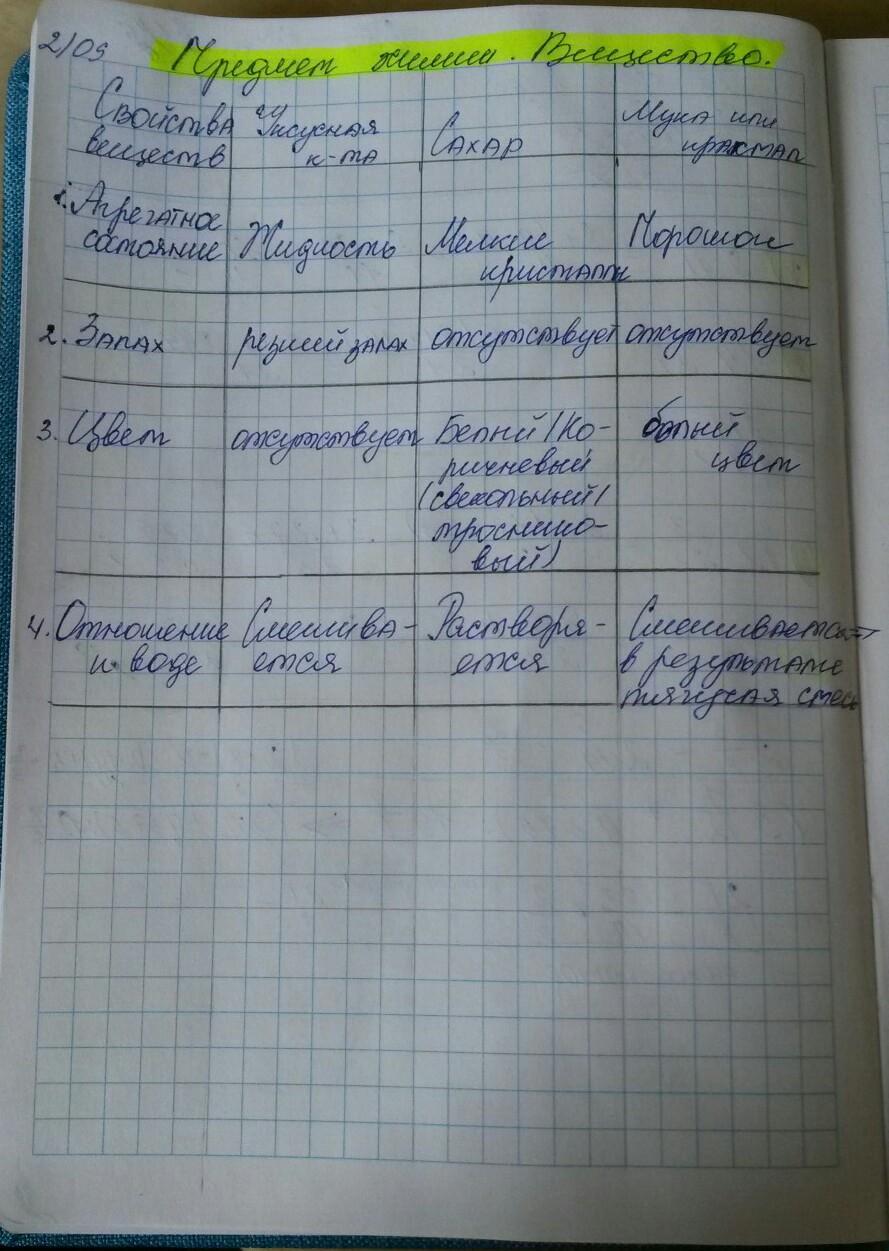 2/09
Предмет химии. Вещество.
Свойства веществ
Уксусная к-та
Сахар
Мука или крахмал
1. Агрегатное состояние
Жидкость
Мелкие кристаллы
Порошок
2. Запах
резкий запах
отсутствует
отсутствует
3. Цвет
отсутствует
Белый/Ко-
ричневый
(свекольный/
тростнико-
вый)
белый
цвет
4. Отношение
к воде
Смешива-
ется
Растворя-
ется
Смешивается
в результате
тягучая смесь